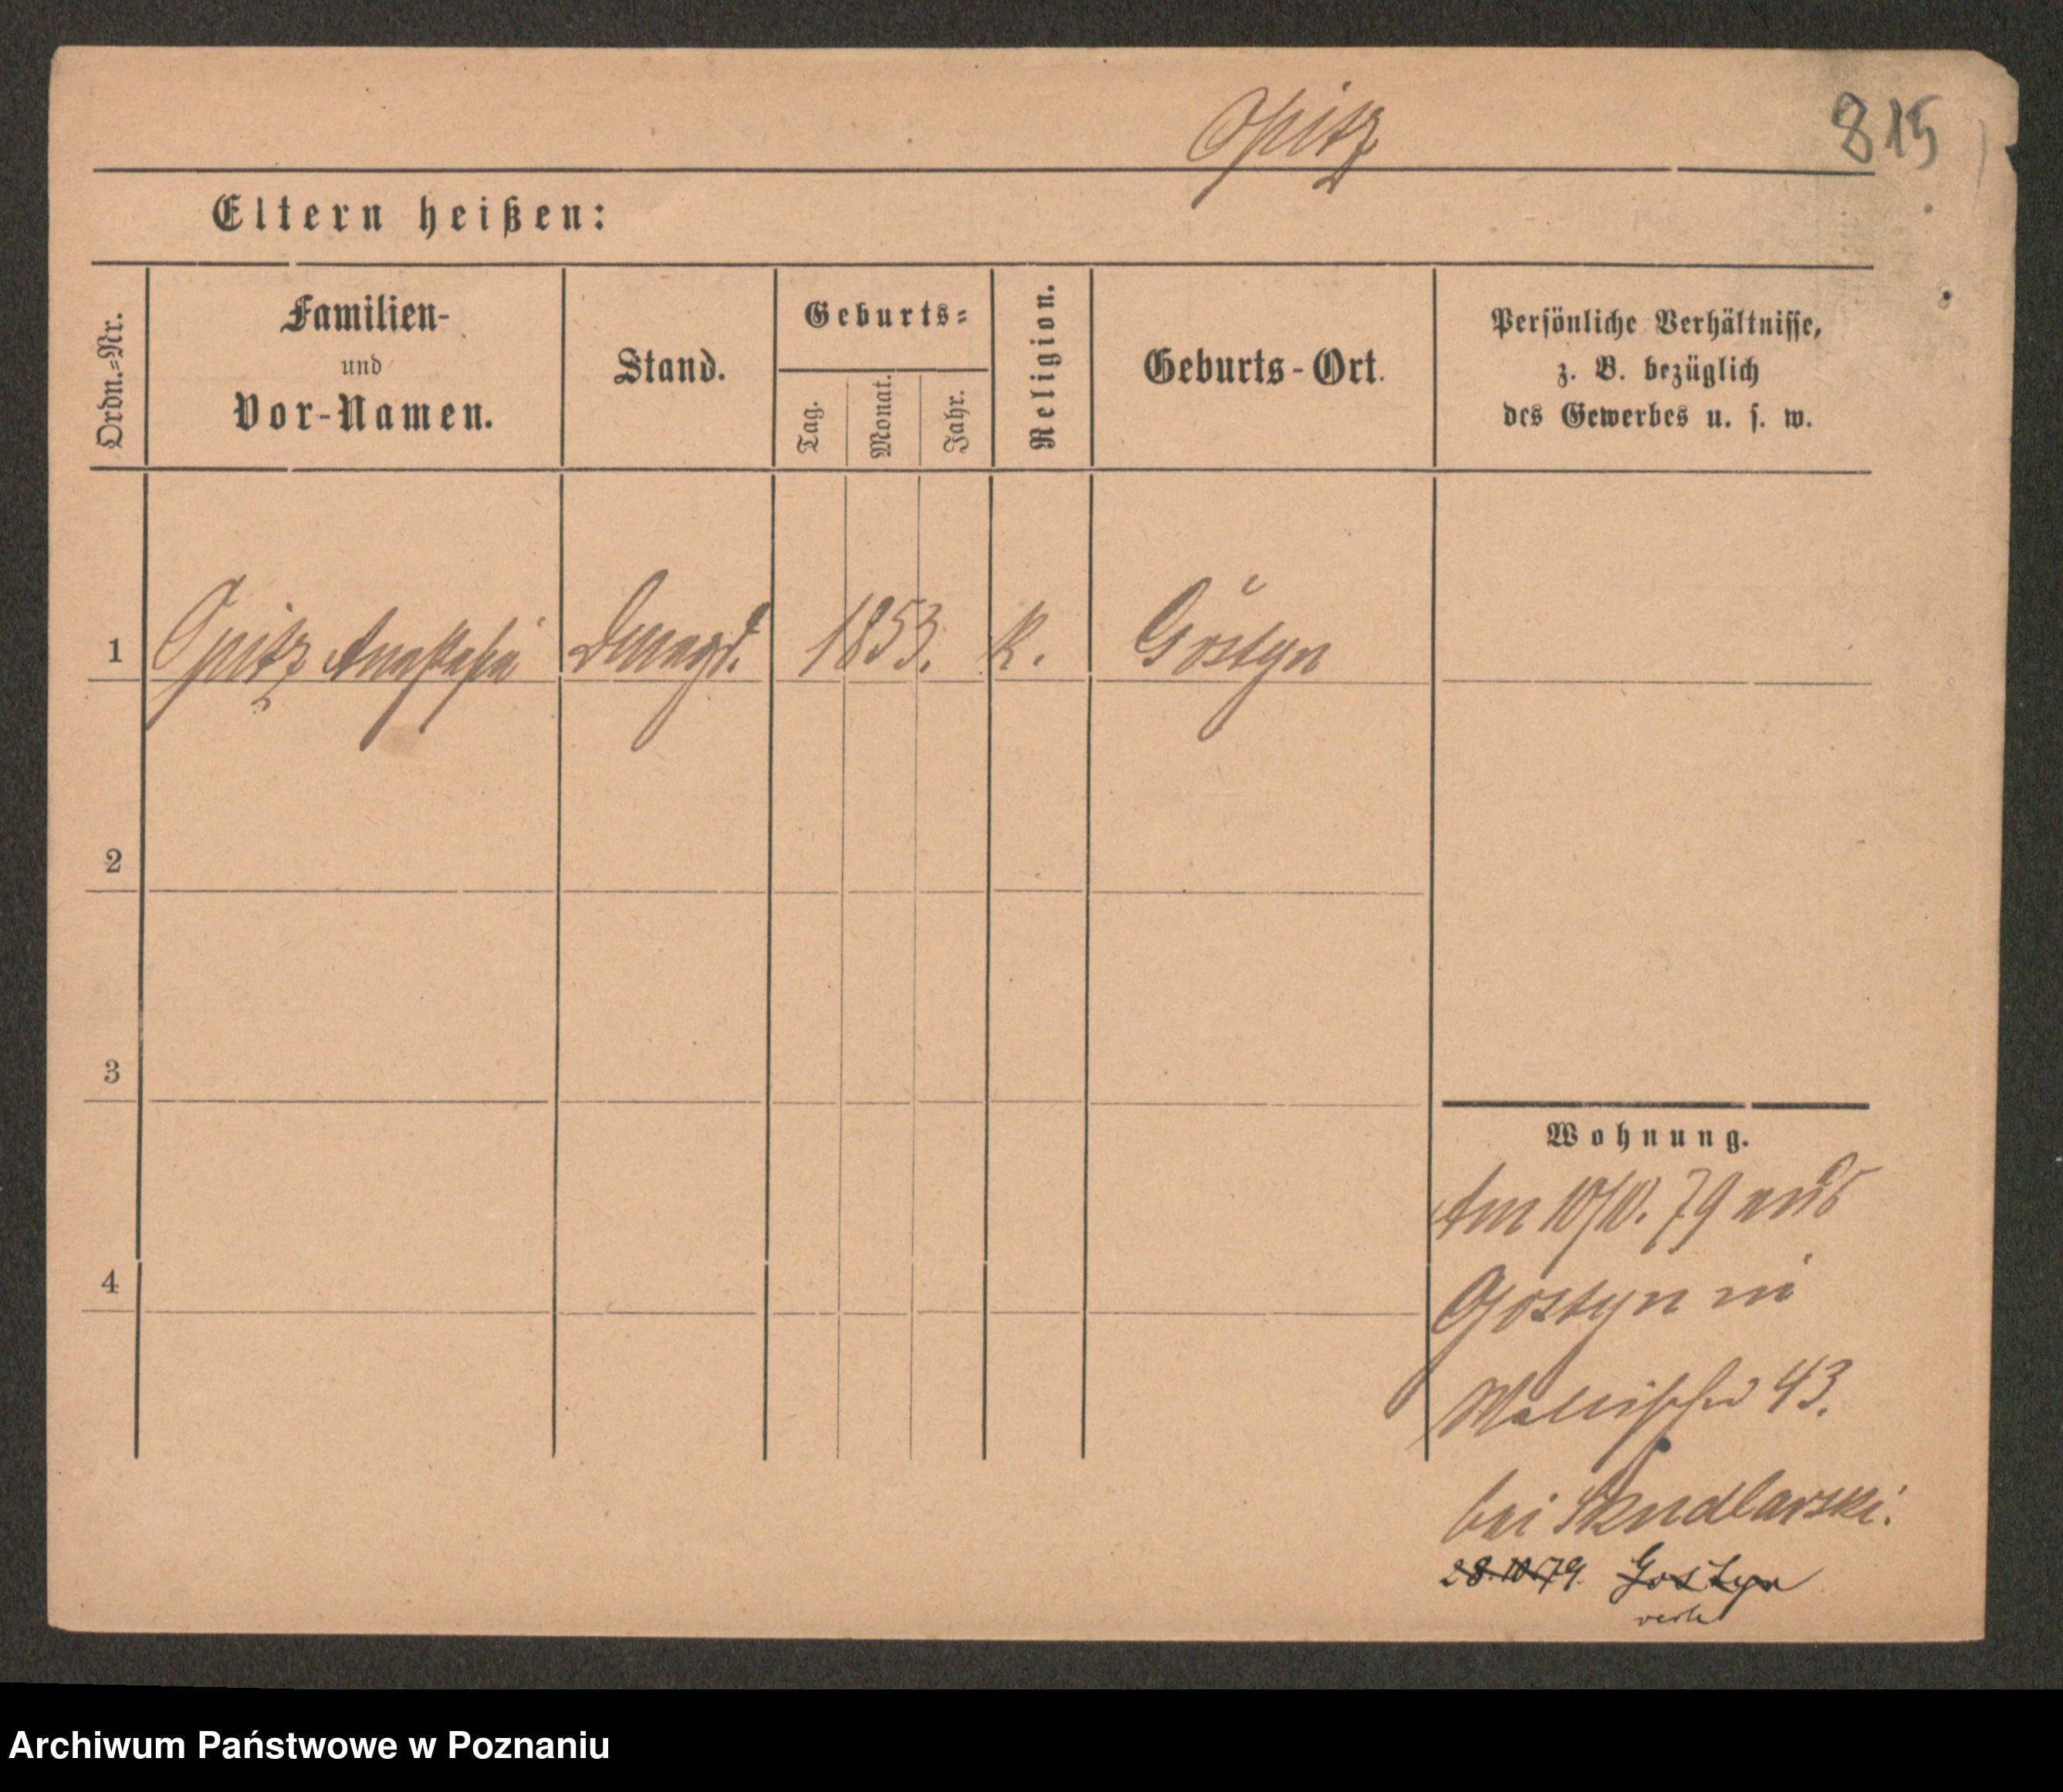 Opitz
815
Eltern heißen:
Ordn.=Nr.
Familien-
und
Vor-Namen.
Stand.
Geburts=
Tag.
Monat.
Jahr.
Religion.
Geburts-Ort.
Persönliche Verhältnisse,
z. B. bezüglich
des Gewerbes u. s. w.
1 Opitz Anastasia Dmagd. 1853. K. Gostyn
2
3
4
Wohnung.
Am 10/10. 79 aus
Gostyn in
Wallischei 43.
bei Skudlarski.
28.10.79. Gostyn
Archiwum Państwowe w Poznaniu